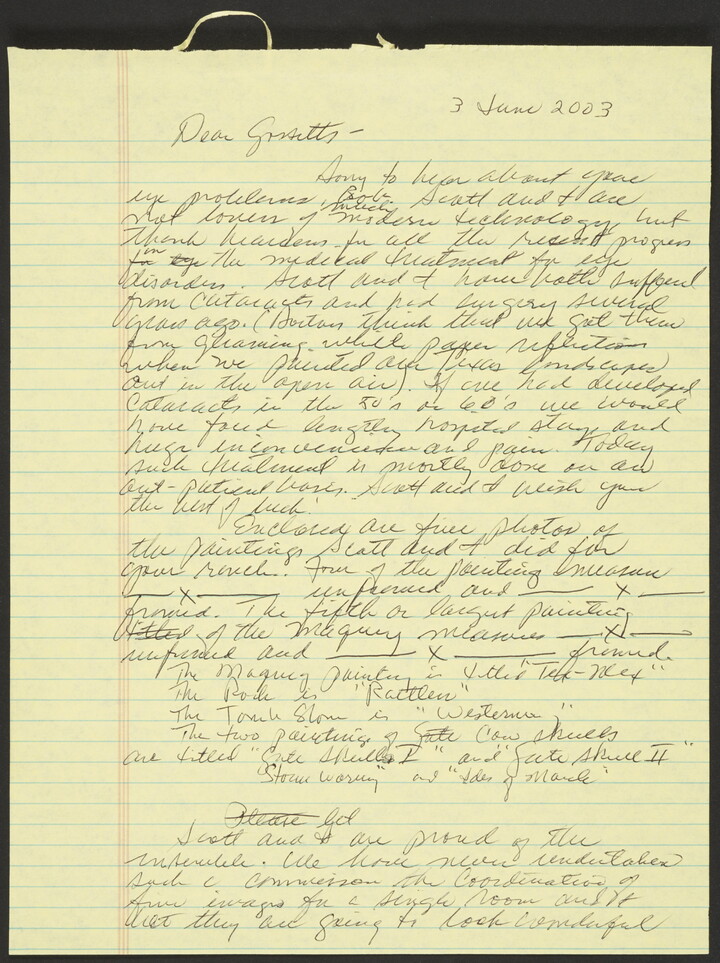 3 June 2003
Dear Gossetts –
Sorry to hear about your
eye problems, Bob. Scott and I are
not lovers of modern technology but
thank heavens for all the recent progress
in the medical treatment for eye
disorders. Scott and I have both suffered
from cataracts and had surgery several
years ago. (Doctors think that we got them
from gleaming white paper reflections
when we painted our Texas landscapes
out in the open air). If we had developed
cataracts in the 50's or 60's we would
have faced lengthy hospital stays and
huge inconvenience and pain. Today
such treatment is mostly done on an
out-patient basis. Scott and I wish you
the best of luck!
Enclosed are five photos of
the paintings Scott and I did for
your ranch. Four of the painting measure
— X — unframed and — X —
framed. The fifth or largest painting
titled of the Maguey measures — X —
unframed and — X — framed.
The Maguey painting is titled "Tex-Mex"
The Rock is "Rattlers"
The Tomb Stone is "Westerner"
The two paintings of Gate Cow skulls
are titled "Gate Skull I" and "Gate Skull II"
"Storm Warning" and "Ides of March"
Please Get
Scott and I are proud of the
ensemble. We have never undertaken
such a commission the coordination of
five images for a single room and
they are going to look wonderful